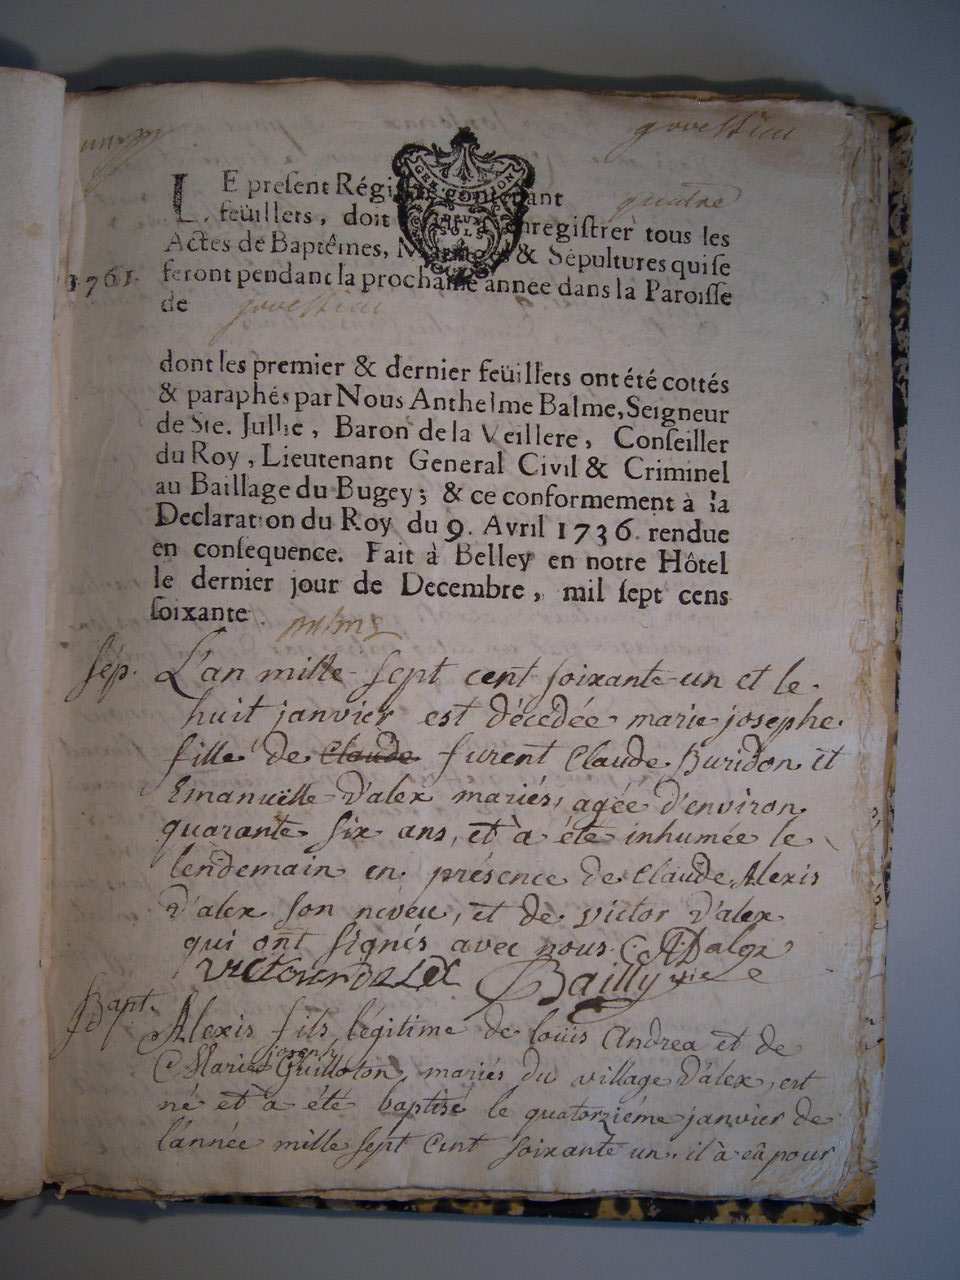 govessieu
LE present Régi contenant quatre
feüillets, doit enregistrer tous les
Actes de Baptêmes, M & Sépultures qui se
1761. feront pendant la prochaine année dans la Paroisse
de govessieu
GEN
DEUX
SOLS
dont les premier & dernier feüillets ont été cottés
& paraphés par Nous Anthelme Balme, Seigneur
de Ste. Julhe, Baron de la Veillere, Conseiller
du Roy, Lieutenant General Civil & Criminel
au Baillage du Bugey; & ce conformement à la
Declaration du Roy du 9. Avril 1736. rendue
en consequence. Fait à Belley en notre Hôtel
le dernier jour de Decembre, mil sept cens
soixante.
Sép. L'an mille sept cent soixante un et le
huit janvier est décedée marie josephe
fille de Claude furent Claude Buridon et
Emanuëlle D'alex mariés, agée d'environ
quarante six ans, et à été inhumée le
lendemain en présence de Claude Alexis
D'alex son neveu, et de victor D'alex
qui ont signés avec nous. C A Dalex
victour dalex Bailly vic
Bapt. Alexis fils légitime de loüis Andrea et de
Marie joseph Guilloton, mariés du village D'alex, est
né et à été baptisé le quatorziéme janvier de
l'année mille sept cent soixante un. il à eû pour